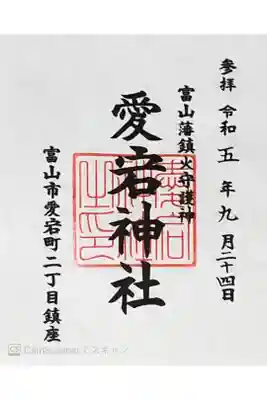 参拝 令和五年九月二十四日
富山藩鎮火守護神
愛宕神社
富山市愛宕町二丁目鎮座
CS CamScannerでスキャン